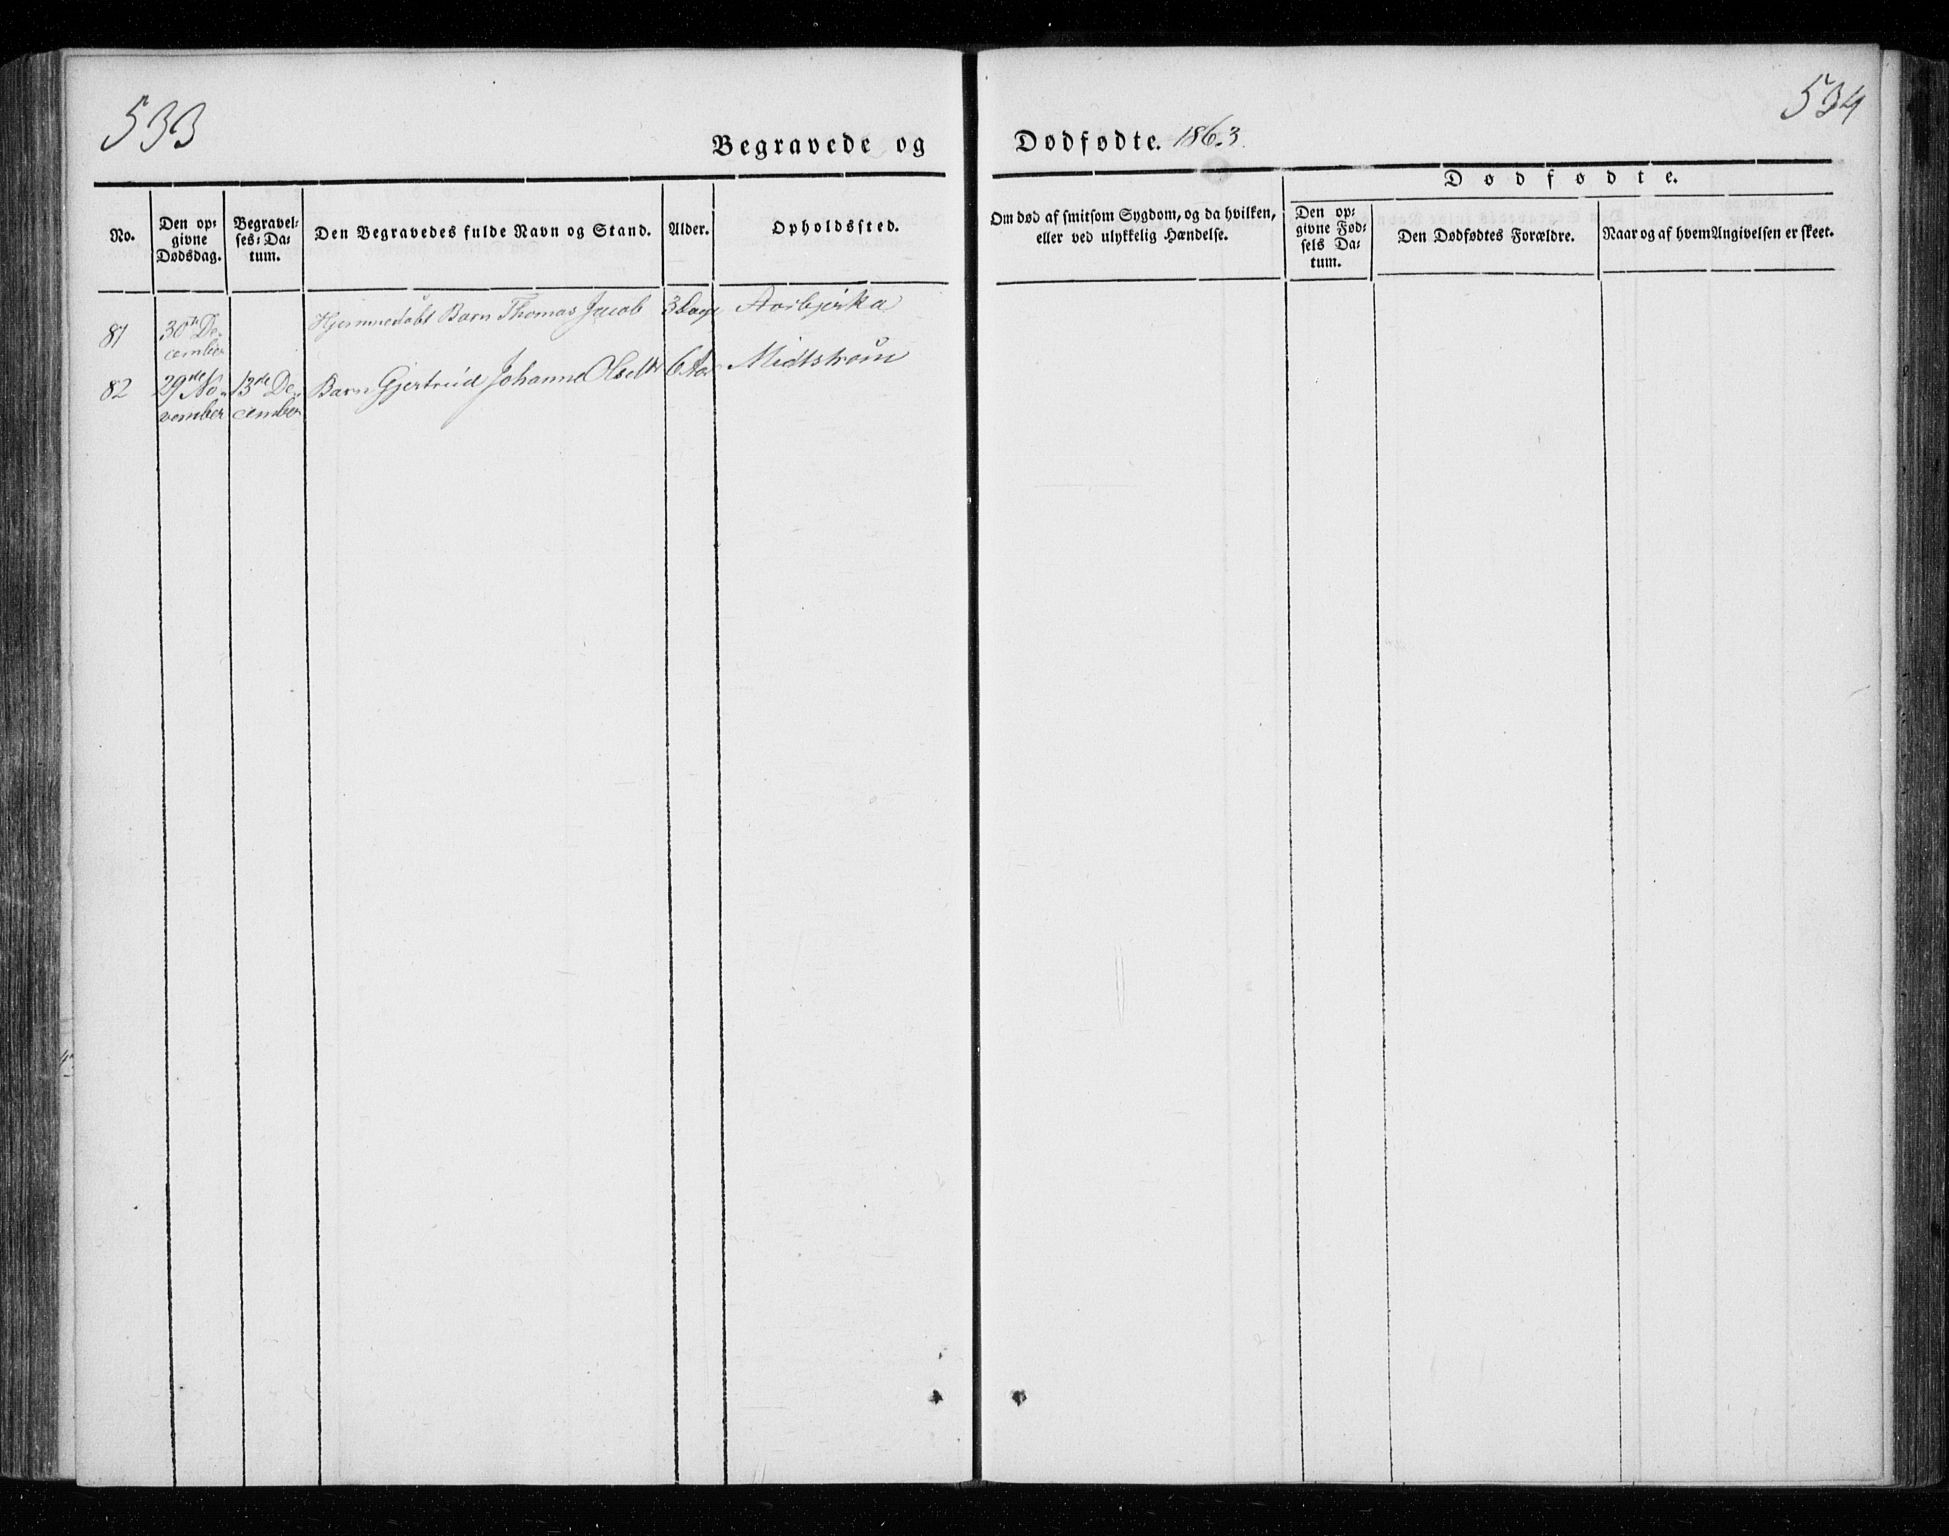 533
534
Begravede og Dødfødte. 1863.
No.
Den op-
givne
Dødsdag.
Begravel-
ses-Da-
tum.
Den Begravedes fulde Navn og Stand.
Alder.
Opholdssted.
Om død af smitsom Sygdom, og da hvilken,
eller ved ulykkelig Hændelse.
Dødfødte.
Den op-
givne Fød-
sels Da-
tum.
Den Dødfødtes Forældre.
Naar og af hvem Angivelsen er skeet.
81 30te De- Hjemmedøbt Barn Thomas Jacob 3 Dage Aarbjerka
cember
82 29de No- 13de De- Barn Gjertrud Johanne Olsdtr 6 Aar Midtstrøm
vember cember